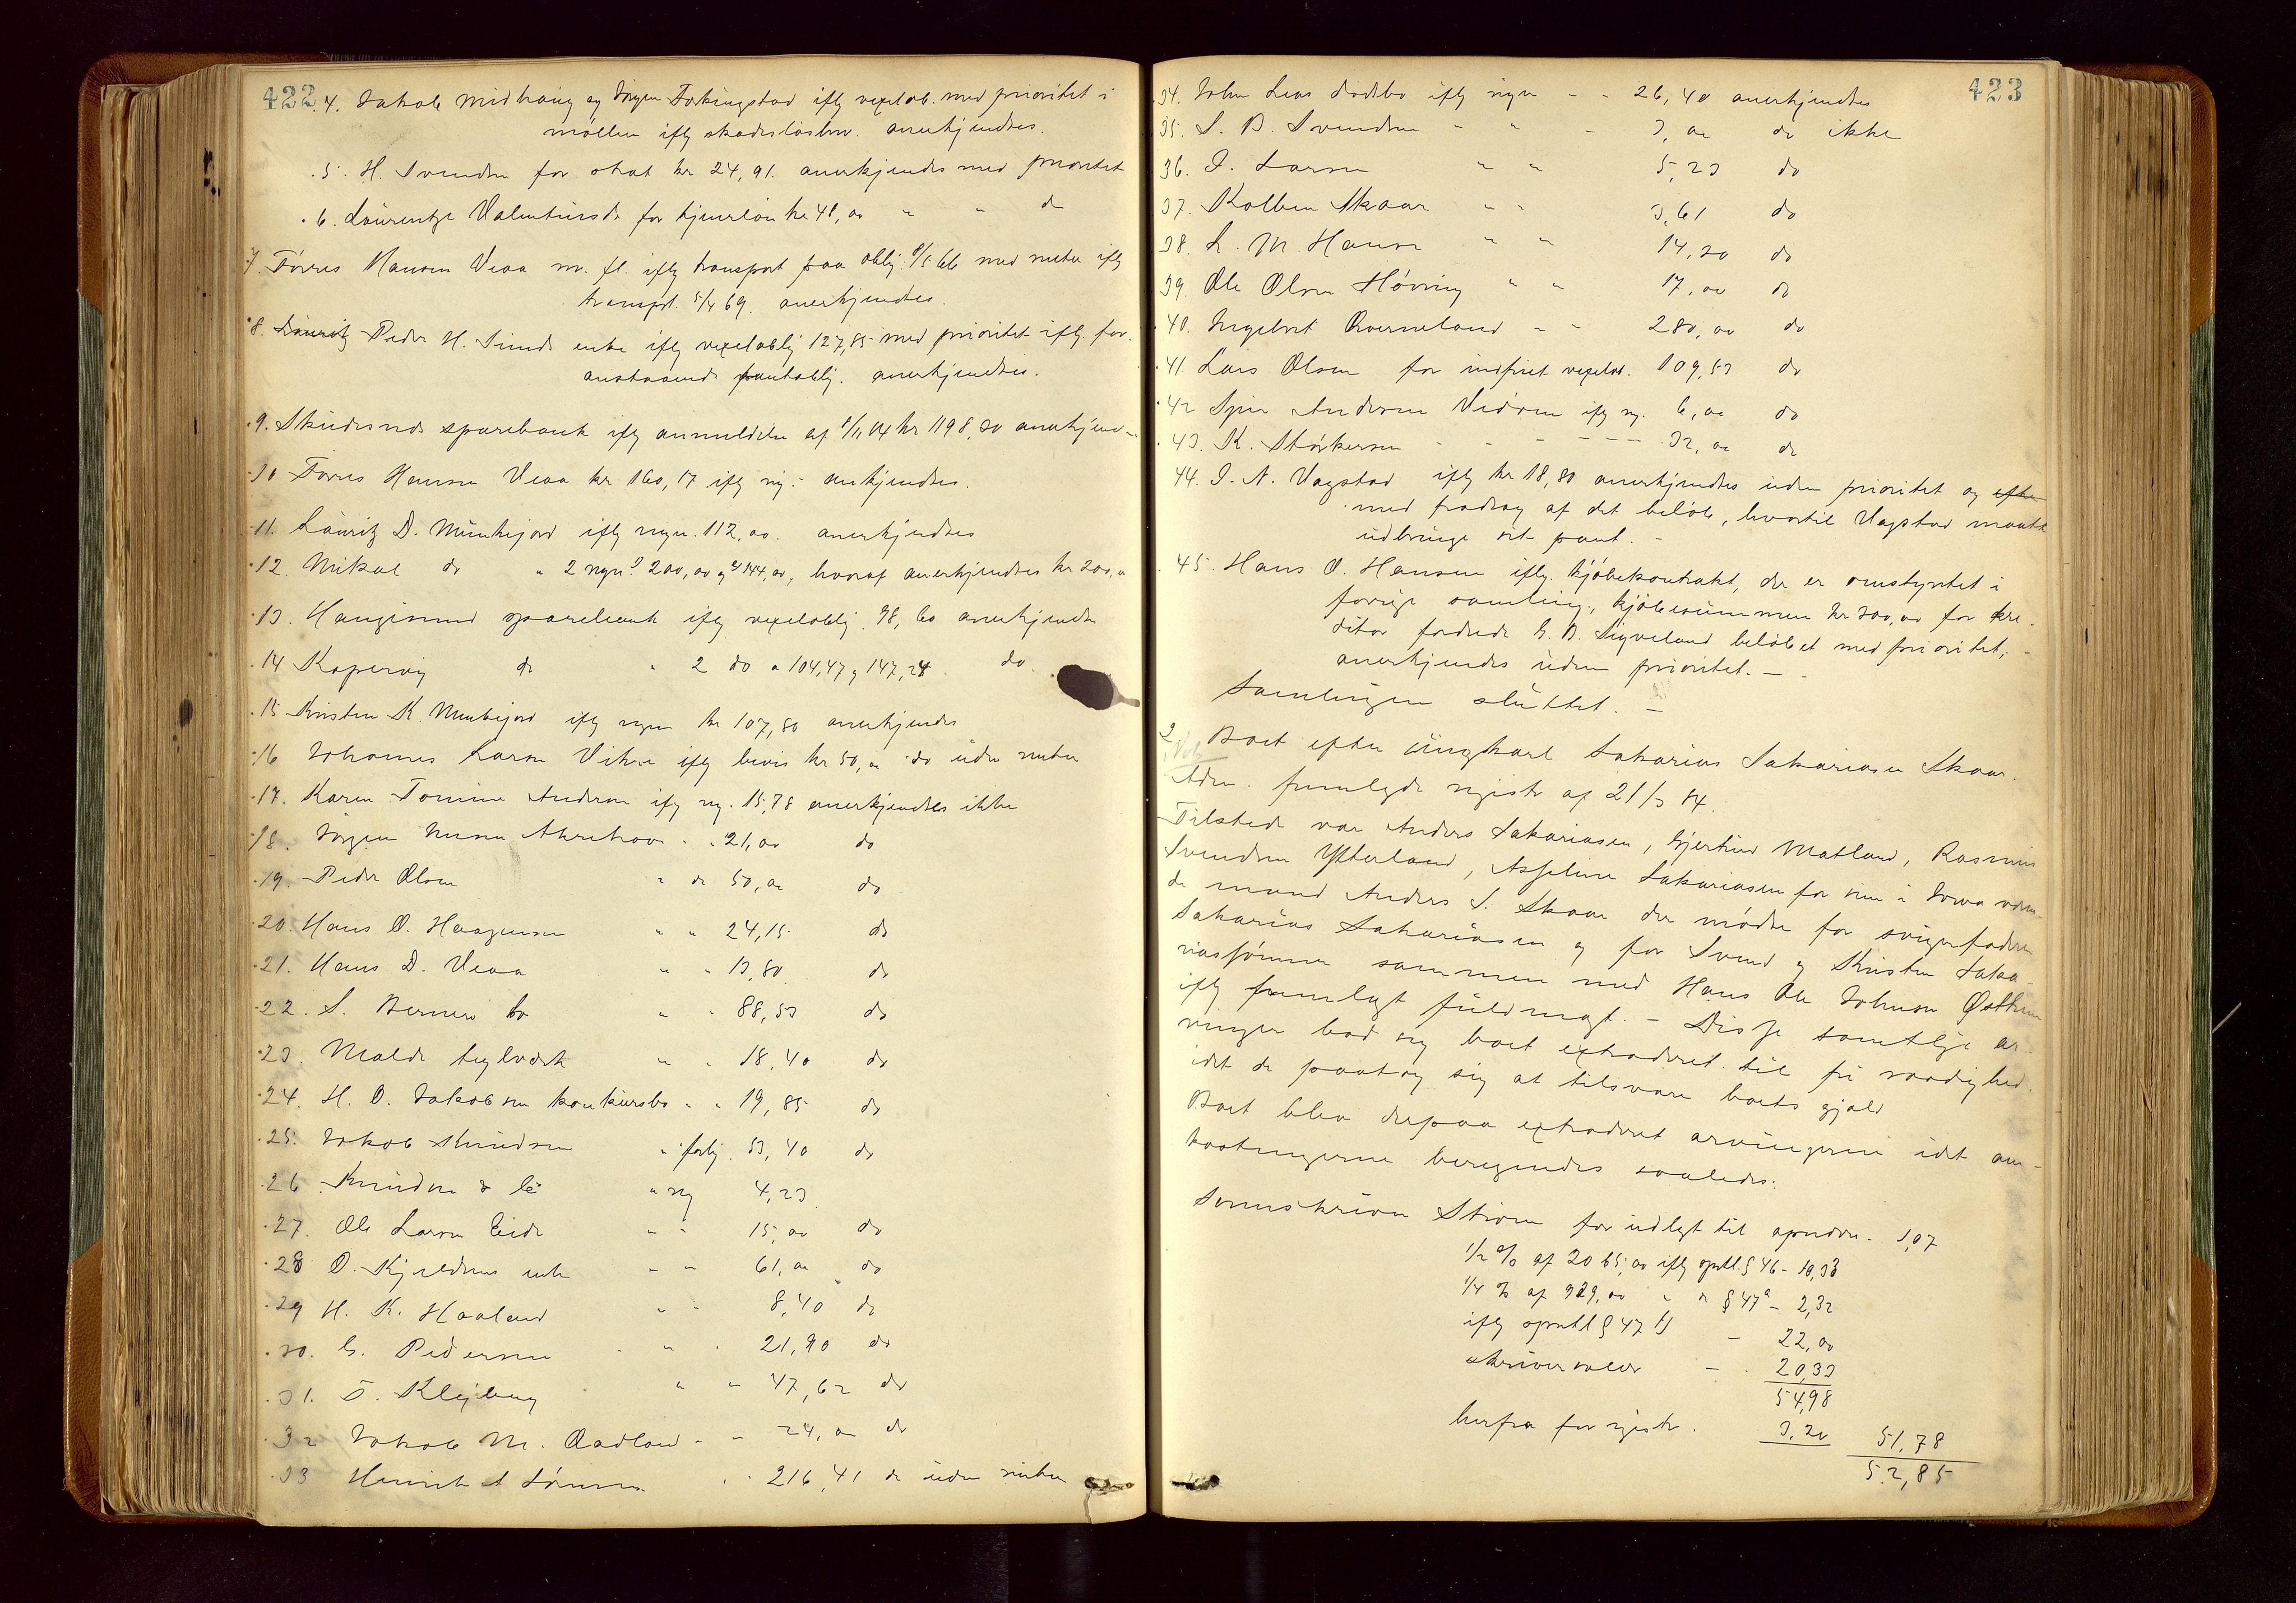 422
4. Jakob Midhaug og Jørgen Fakingstad iflg vexelob. med prioritet i
møllen iflg skadesløsbrv. anerkjendtes.
5. H. Svendsen for skat kr 24,91. anerkjendes med prioritet
6. Laurentze Valentinsdr for tjenerløn kr 48,00 " " do
7. Tørres Hansen Veaa m. fl. iflg transport paa oblig. 8/5 66 med renter iflg
transpt. 5/4 69. anerkjendtes.
8. Lauritz Peder H. Sunds enke iflg vexeloblig 127,85 med prioritet iflg. for-
anstaaende pantoblig. anerkjendtes.
9. Skudesnes sparebank iflg anmeldelse af 8/11 84 kr 1198,20 anerkjend-
10 Tørres Hansen Veaa kr 160,17 iflg rg. ankjendtes.
11. Lauritz D. Munkejord iflg regn. 112,00. anerkjendtes
12. Mikal do " 2 regn. 200,00 og 144,00, hvoraf anerkjendtes kr 200,00
13. Haugesund sparebank iflg vexeloblig. 98,60 anerkjendtes
14 Kopervig do " 2 do " 104,47 og 147,24 do.
15 Kristen K. Munkejord iflg regn kr 107,80 anerkjendes
16 Johannes Larsen Vikre iflg bevis kr 50,00 do uden renter
17. Karen Tomine Andersen iflg rg. 15,78 anerkjendtes ikke
18. Jørgen Aakrehavn " " 21,00 do
19. Peder Olsen " do 50,00 do
20. Hans O. Haagensen " " 24,15 do
21. Hans D. Veaa " " 13,80 do
22. S. Berner & Co " " 88,53 do
23. Malde teglværk " " 18,40 do
24. H. O. Jakobsen konkursbo " " 19,85 do
25. Jakob Knudsen " forlig. 53,40 do
26. Knudsen & Co " rg 4,23
27. Ole Larsen Eide " " 15,00 do
28 O. Kjeldsens enke " " 61,00 do
29 H. K. Haaland " " 8,40 do
30. G. Pedersen " " 21,90 do
31. T. Klejberg " " 47,62 do
32 Jakob M. Aadland " " 24,00 do
33 Henrik A. Sørensen " " 216,41 do uden renter
423
34. John Leas iflg regn - - 26,40 anerkjendtes
35. S. B. Svendsen " " - 3,00 do ikke
36. I. Larsen " " 5,23 do
37. Kolben Skaar " " 3,61 do
38. L. M. Hansen " " 14,20 do
39. Ole Olsen Høvring " " 17,00 do
40. Ingebret Kverneland " " 280,00 do
41. Lars Olsen for indfriet vexelob. 109,53 do
42 Andersen iflg rg. 6,00 do
43. K. Størkersen - - - - - - 32,00 do
44. I. N. Vagstad iflg kr 18,80 anerkjendtes uden prioritet og efter
med fradrag af det beløb, hvortil Vagstad maatte
udbringe sit pant. -
45. Hans O. Hansen iflg. kjøbekontrakt, der er omstyrtet i
forrige samling, kjøbesummen kr 300,00 for kre-
ditor fordrede G. B. Sigveland beløbet med prioritet; -
anerkjendes uden prioritet. -
Samlingen sluttet. -
2 Boet efter ungkarl Sakarias Sakariasen Skaar.
Adm. fremlagde registr af 21/3 84.
Tilstede var Anders Sakariasen, Gjertrud Matland, Rasmus
Svendsen Ytterland, Asseline Sakariasen for sin i Iowa væren-
de mand Anders S. Skaar der mødte for svigerfaderen
Sakarias Sakariasen og for Svend og Kristen Saka-
riassønner sammen med Hans Ole Johnsen Østhus
iflg fremlagt fuldmagt. - Disse samtlige ar-
vinger bad sig boet extraderet til fri raadighed
idet de paatog sig at tilsvare boets gjæld
Boet blev derpaa extraderet arvingerne idet om-
kostningerne beregnedes saaledes:
Sorenskriver Strøm for udlagt til apnoteren. 1,07
1/2 % af 2065,00 iflg sptl. § 46 - 10,33
1/4 % af 929,00 " " § 47 a - 2,32
iflg sportl § 47 b) - 22,00
skriversalær - 20,33
54,98
herfra for registr. 3,20 51,78
52,85